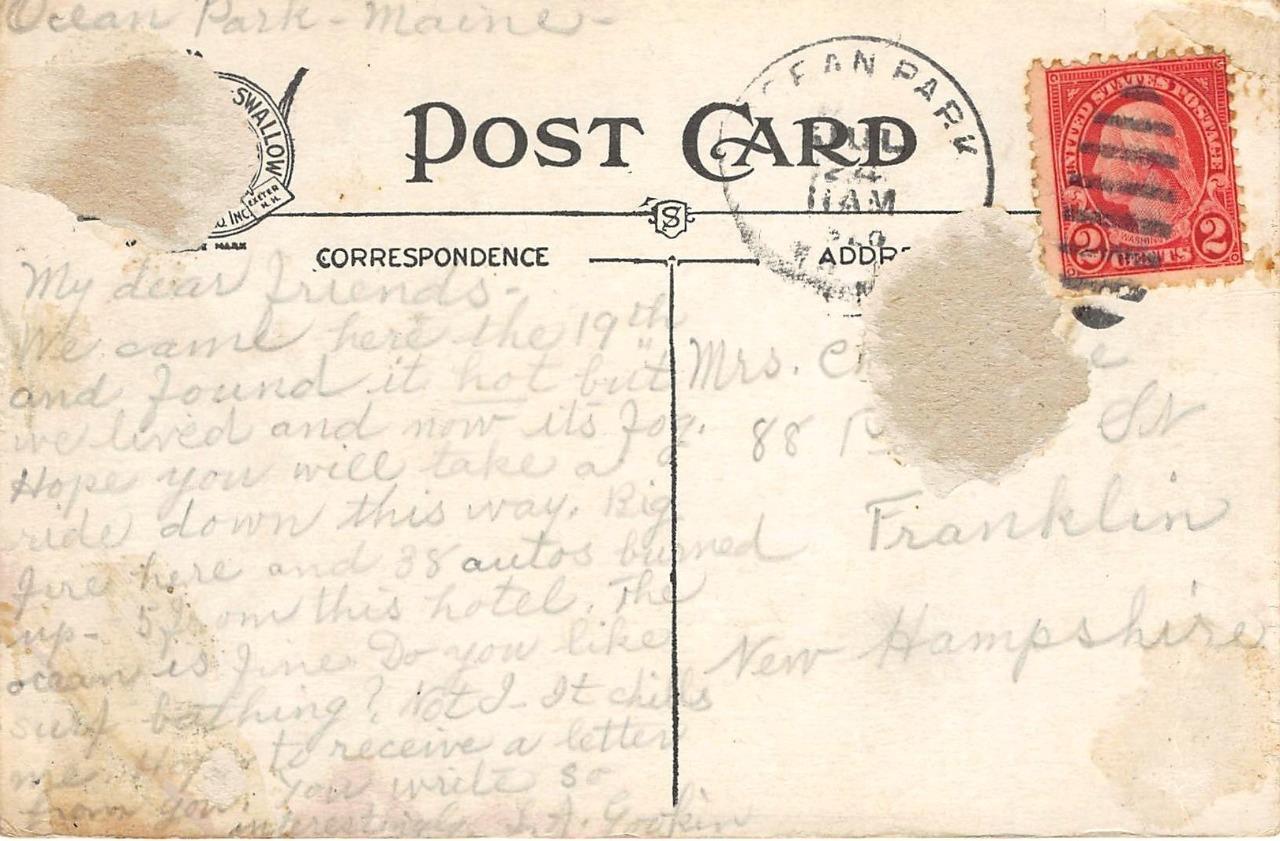 Ocean Park - Maine -
SWALLOW
INC.
EXETER
N.H.
MARK
POST CARD
OCEAN PARK
JUL
24
11AM
UNITED STATES POSTAGE
2 2
S
CORRESPONDENCE
ADDR
My dear Friends -
We came here the 19th
and found it hot but
we lived and now its fog.
Hope you will take a
ride down this way. Big
fire here and 38 autos burned
up - 5 from this hotel. The
ocean is fine. Do you like
surf bathing? Not I - It chills
me. Hope to receive a letter
from you. You write so
interestingly. Gookin
Mrs. Ch e
88 St
Franklin
New Hampshire